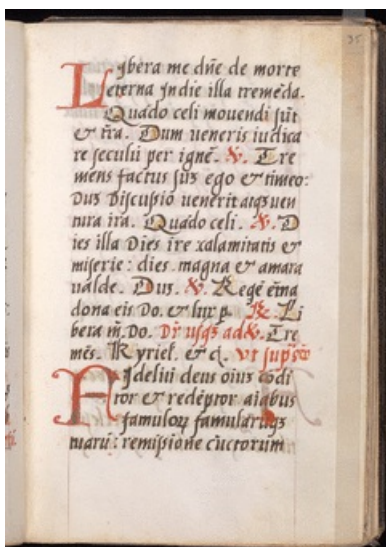 35
Lybera me dñe de morte
eterna Jn die illa tremēda.
Quādo celi mouendi sūt
& tr̄a. Dum veneris iudica
re seculū per ignē. V. Tre
mens factus sūȝ ego & timeo:
Duȝ Discussio venerit atqȝ ven
tura ira. Quādo celi. V. D
ies illa Dies ire xalamitatis &
miserie: dies magna & amara
valde. Duȝ. V. Regē etīna
dona eis Do. & lux p. R. Li
bera m̄. Do. Dr̄ usqȝ ad V. Tre
mēs. Kyriel. & c̄. vt sup̄
Fidelīu deus oīuȝ cōdi
tor & redēptor aīabus
famuloꝝ famularuqȝ
tuarū: remissionē cūctorum